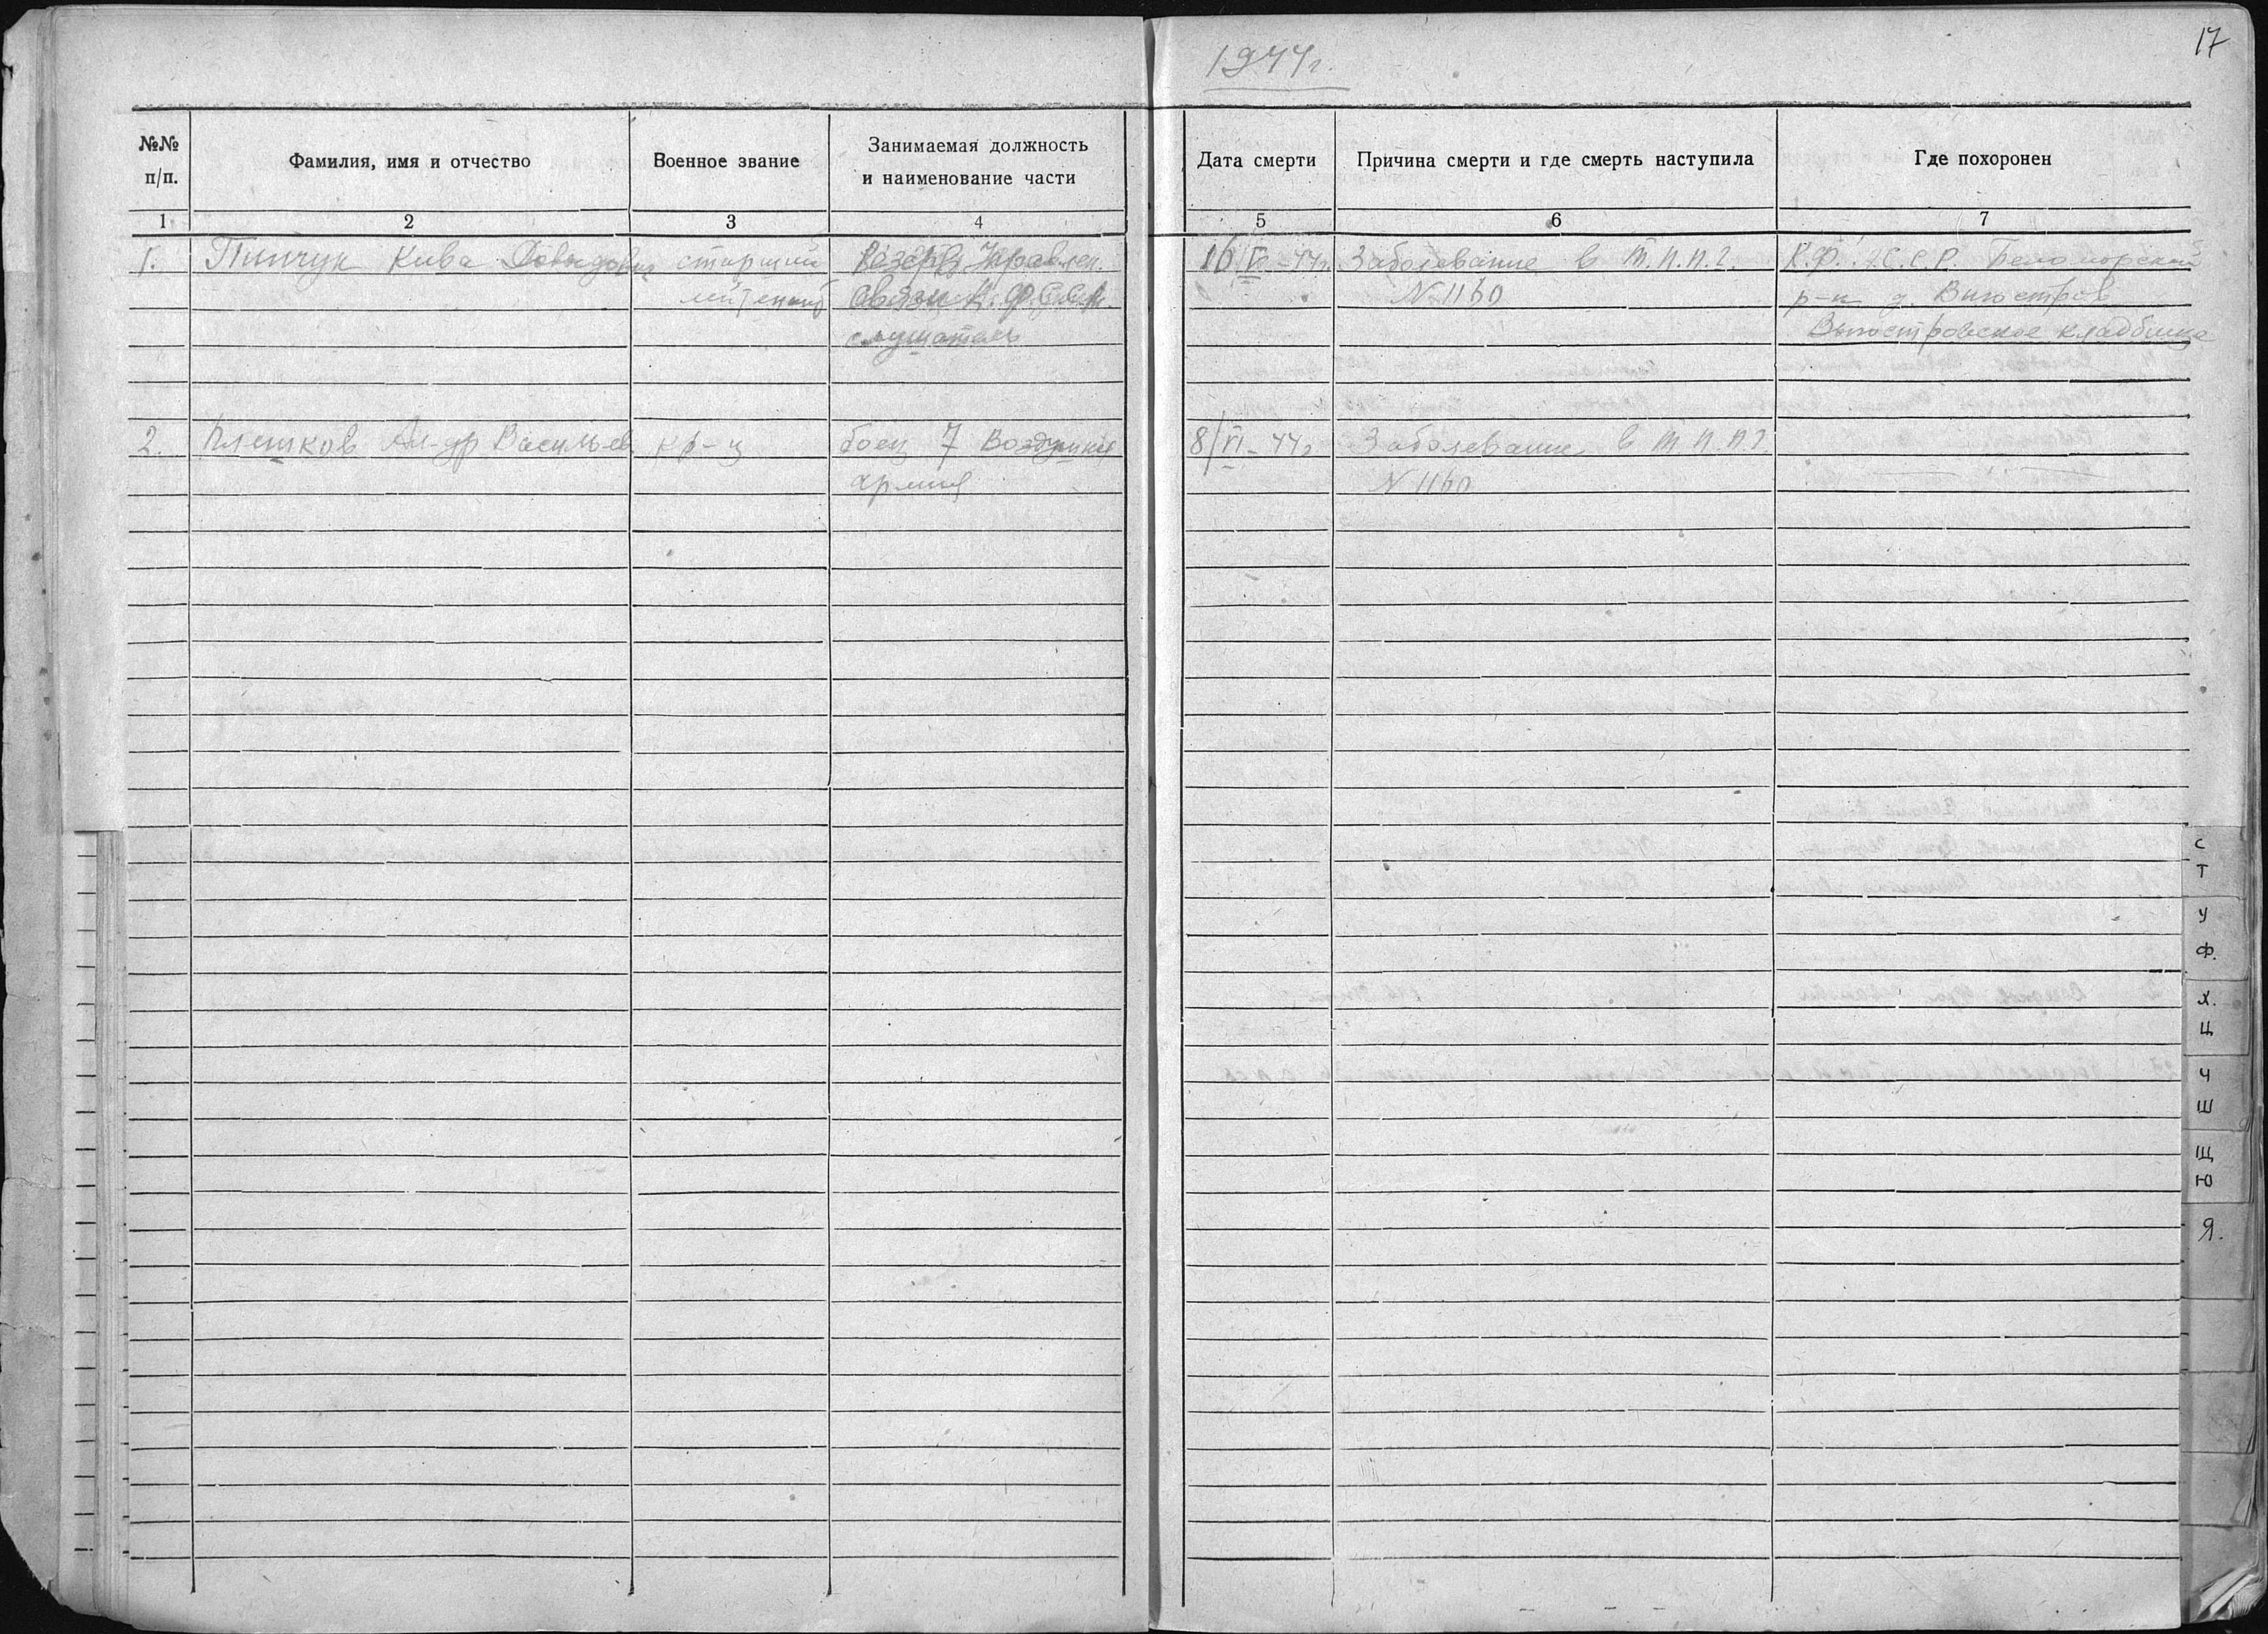 17
1944г.
№№ п/п.
Фамилия, имя и отчество
Военное звание
Занимаемая должность и наименование части
Дата смерти
Причина смерти и где смерть наступила
Где похоронен
1 2 3 4 5 6 7
1. Пинчук Кива Давыдович старший Резерв Управлен. 16 -44г. Заболевание в Т.П.П.Г. К.Ф.С.С.Р. Беломорский
лейтенант Связи К.Ф. № 1160 р-н д. Выгостров
слушатель Выгостровское кладбище
2. Плешков Ал-др Васильев. кр-ц боец 7 Воздушной 8/VI-44г Заболевание в Т.П.П.Г.
армия № 1160
С
Т
У
Ф.
Х.
Ц
Ч
Ш
Щ
Ю
Я.